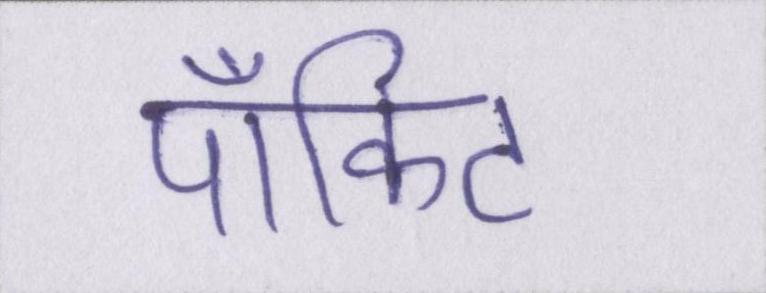 पाँकिट